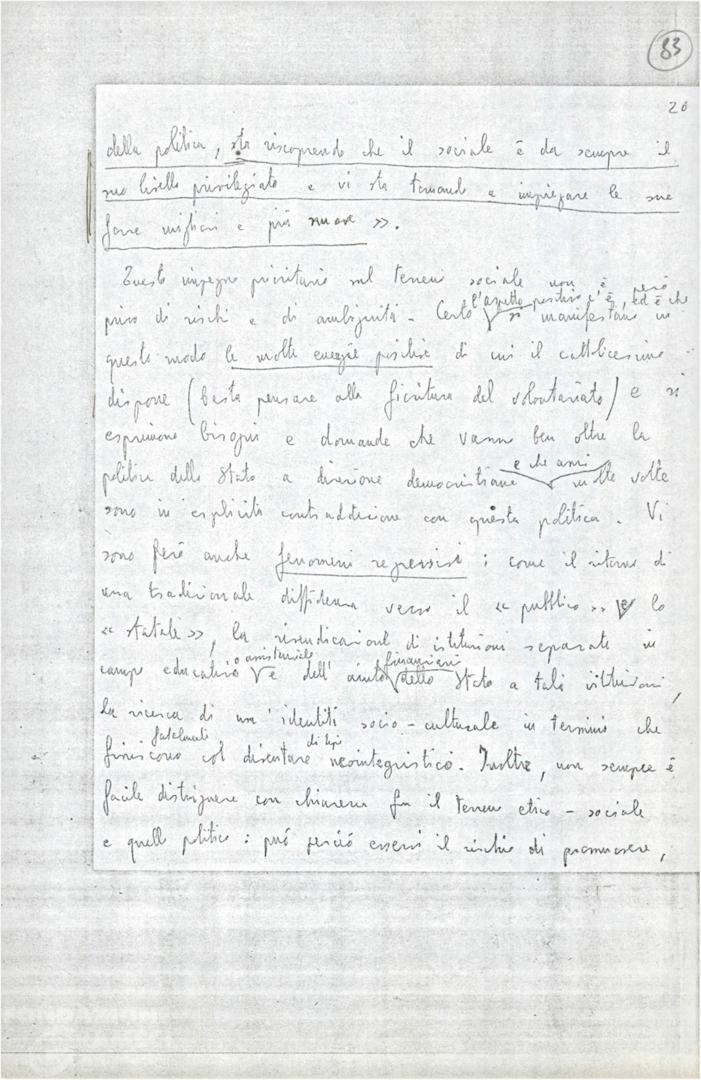 83
20
della politica, sta riscoprendo che il sociale è da sempre il
suo livello privilegiato e vi sta tornando a impiegare le sue
forze migliori e più nuove ».
Questo impegno prioritario sul terreno sociale non è però
l'aspetto positivo c'è, ed è che
privo di rischi e di ambiguità. Certo si manifestano in
questo modo le molte energie positive di cui il cattolicesimo
dispone (basta pensare alla fioritura del volontariato) e si
esprimono bisogni e domande che vanno ben oltre la
e che anzi
politica dello Stato a direzione democristiana molte volte
sono in esplicita contraddizione con questa politica. Vi
sono però anche fenomeni regressivi: come il ritorno di
una tradizionale diffidenza verso il « pubblico » e lo
« statale », la rivendicazione di istituzioni separate in
o assistenziale finanziario
campo educativo e dell'aiuto dello Stato a tali istituzioni,
la ricerca di un'identità socio-culturale in termini che
fatalmente di tipo
finiscono col diventare neointegristico. Inoltre, non sempre è
facile distinguere con chiarezza fra il terreno etico-sociale
e quello politico: può perciò esservi il rischio di promuovere,